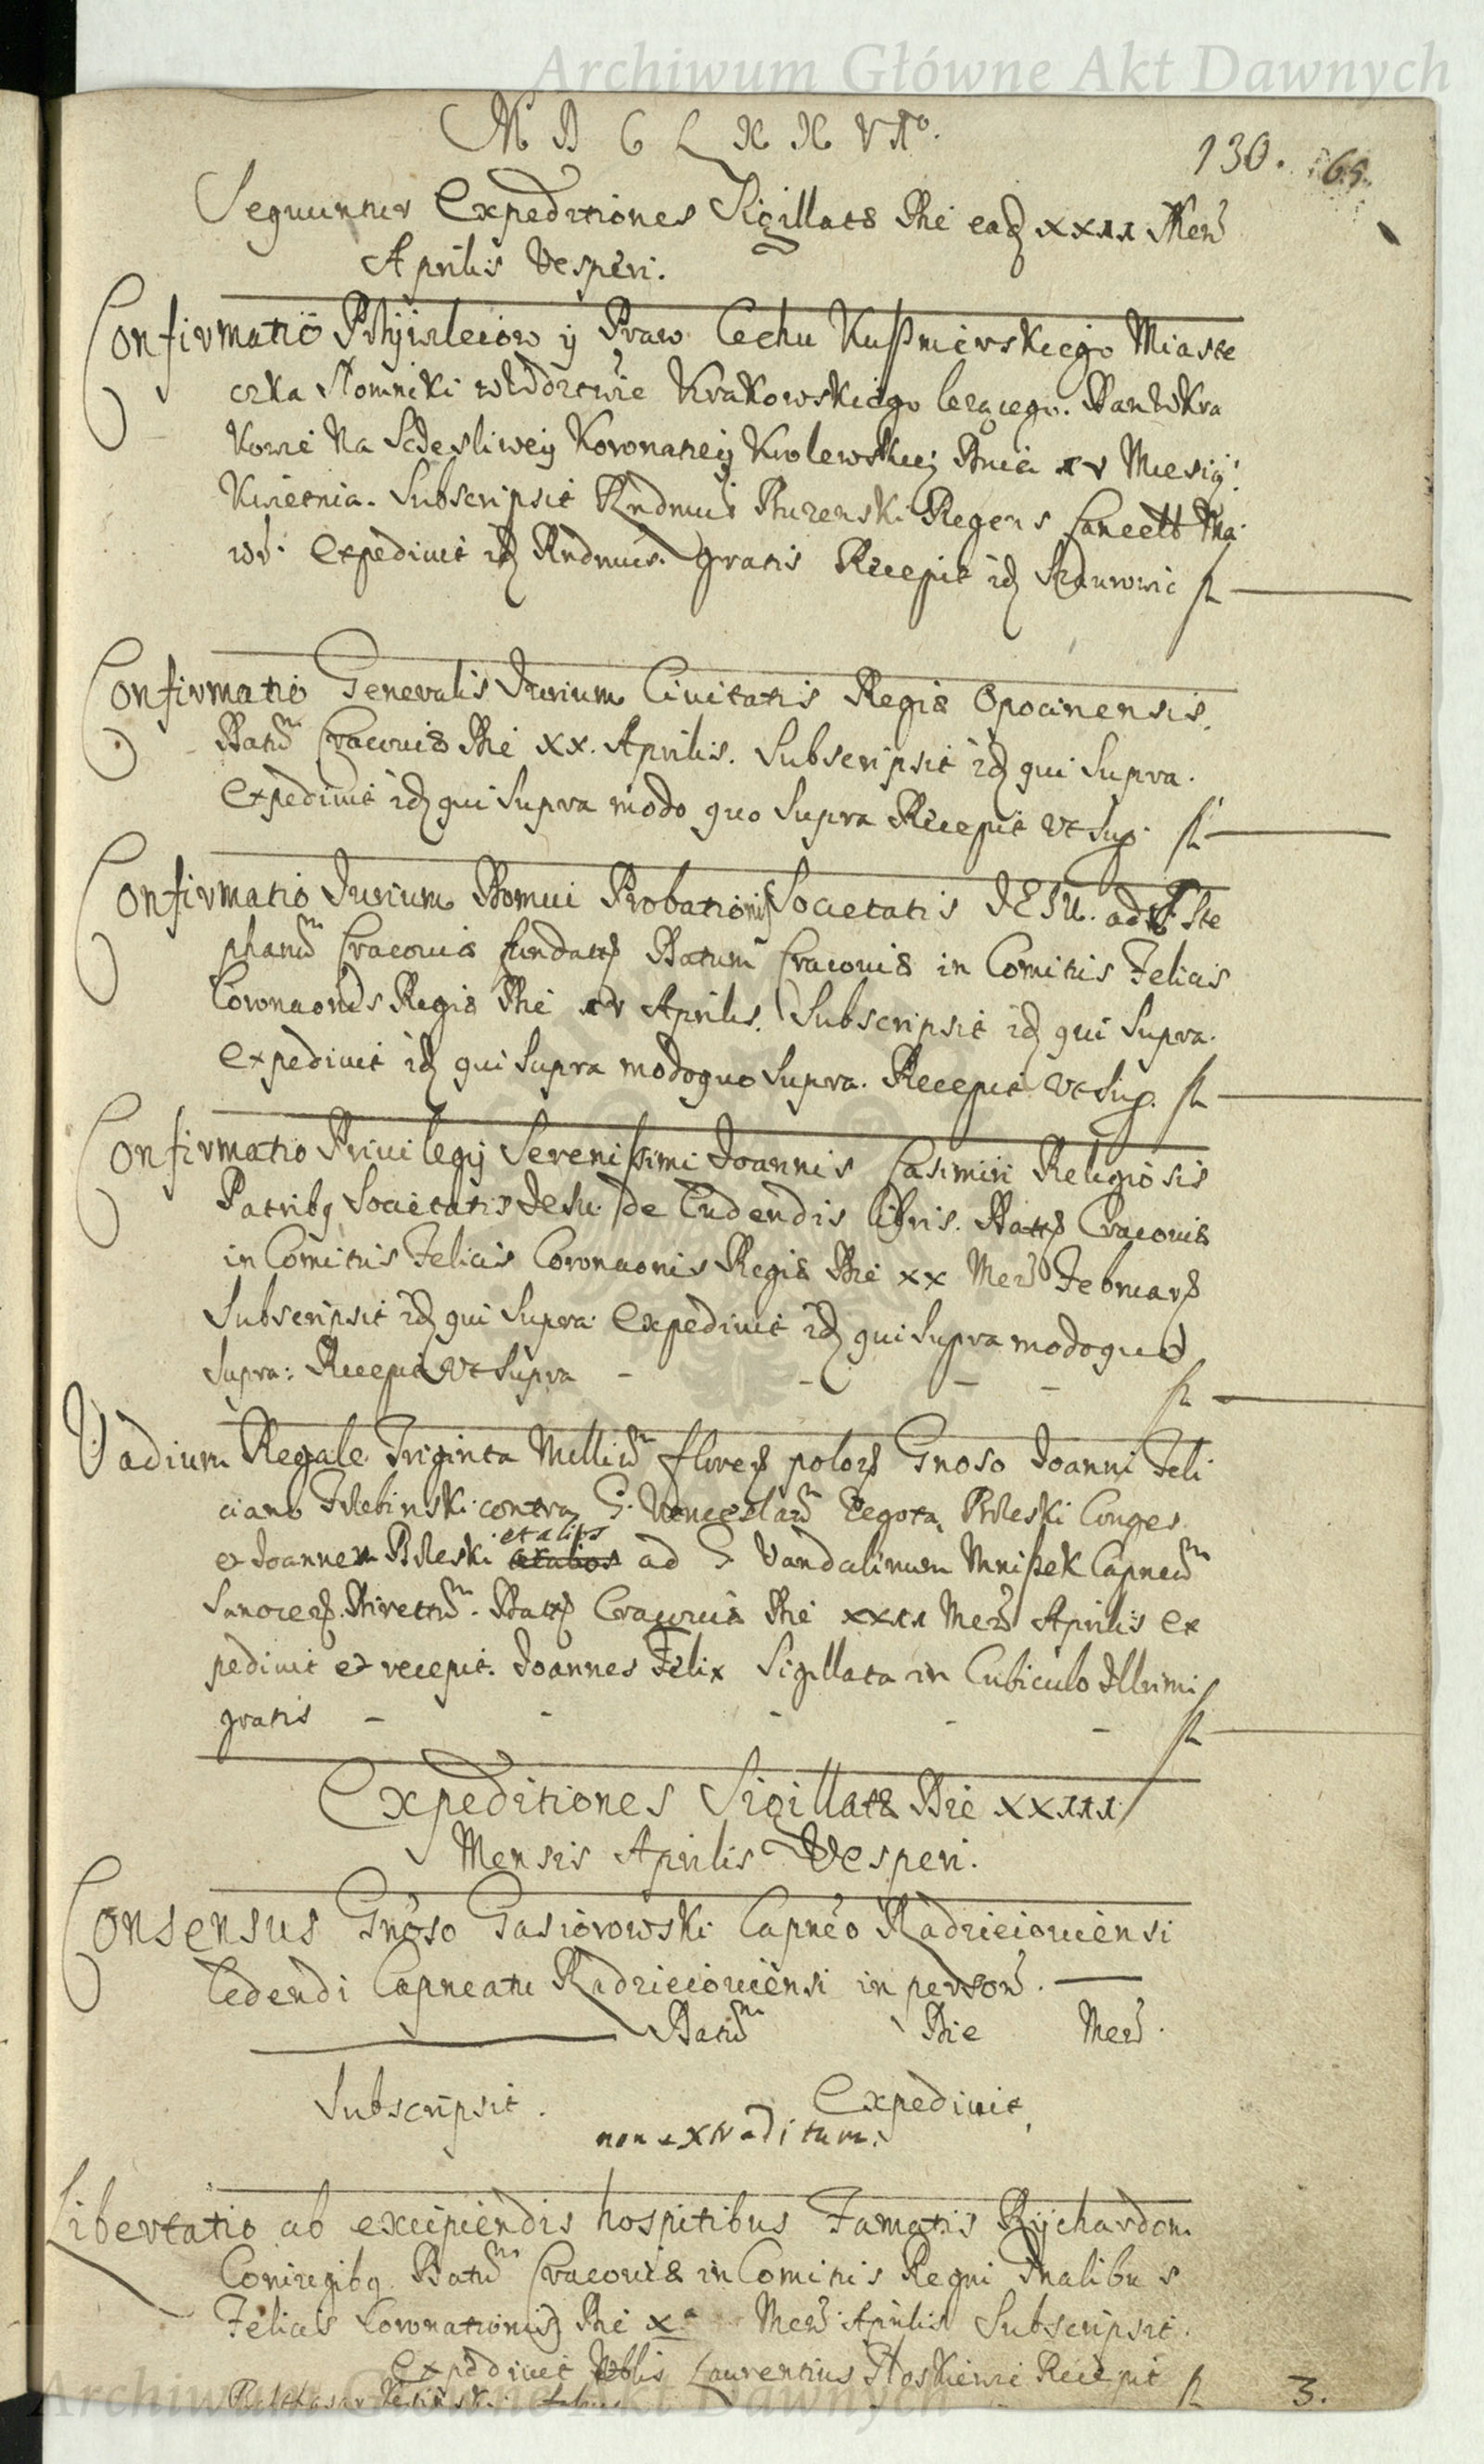 Archiwum Główne Akt Dawnych
M D C L X X VIo.
130. 65.
Sequuntur Expeditiones Sigillatæ Die eadq XXII Mens
Aprilis Vesperi.
Confirmatio Przÿwileiow ÿ Praw Cechu Kuβnierskiego Miaste
czka Słomniki w Wdztwie Krakowskiego lezącego. Dan W Kra
kowie Na Sczesliwey Koronatiey Krolewskiej Dnia XV Miesią:
Kwietnia. Subscripsit Rndmus Regens Cancell
Expediuit idq Rndmus. gratis Recepit idq fl
Confirmatio Generalis Jurium Ciuitatis Regiæ Opocinensis.
Datum Cracouiæ Die XX. Aprilis. Subscripsit idq qui Supra.
Expediuit idq qui Supra modo quo Supra Recepit Vt Sup. fl
Confirmatio Jurium Domui Probationis Societatis JESU. ad S. Ste
phanum Cracouiæ fundatæ Datum Cracouiæ in Comitiis Felicis
Coronaonis Regiæ Die XV Aprilis. Subscripsit idq qui Supra.
Expediuit idq qui Supra modo quo Supra. Recepit Vt Sup. fl
Confirmatio Priuilegij Serenissimi Joannis Casimiri Religiosis
Patribq Societatis Jesu. de Cudendis libris. Dat Cracouiæ
in Comitiis Felicis Coronaonis Regiæ Die XX Mens Februar
Subscripsit idq qui Supra. Expediuit idq qui Supra modo quo
Supra: Recepit Vt Supra - - - - fl
Vadium Regale Triginta Millium floren polon Gnoso Joanni Feli
ciano contra G. Venceslaum Pileski Conges.
et Joannem Pileski et alios ad G Vandalinum Mniβek Capneum
Sanocen. Directum. Dat Cracouiæ Die XXII Mens Aprilis Ex
pediuit et recepit. Joannes Felix Sigillata in Cubiculo Illrimi
gratis - - - - - fl
Expeditiones Sigillatæ Die XXIII
Mensis Aprilis Vesperi.
Consensus Gnoso Gasiorowski Capneo Radzieiouiensi
Cedendi Capneatu Radzieiouiensi in person.
Datum Die Mens.
Subscripsit. Expediuit
non extraditum.
Libertatio ab excipiendis hospitibus Famatis Rÿchardom
Coniugibq Datum Cracouiæ in Comitiis Regni Gnalibus
Felicis Coronationis Die Xa Mens Aprilis Subscripsit.
Expediuit Nobilis Laurentius Recepit
Balthasar fl 3.
Archiwum Główne Akt Dawnych